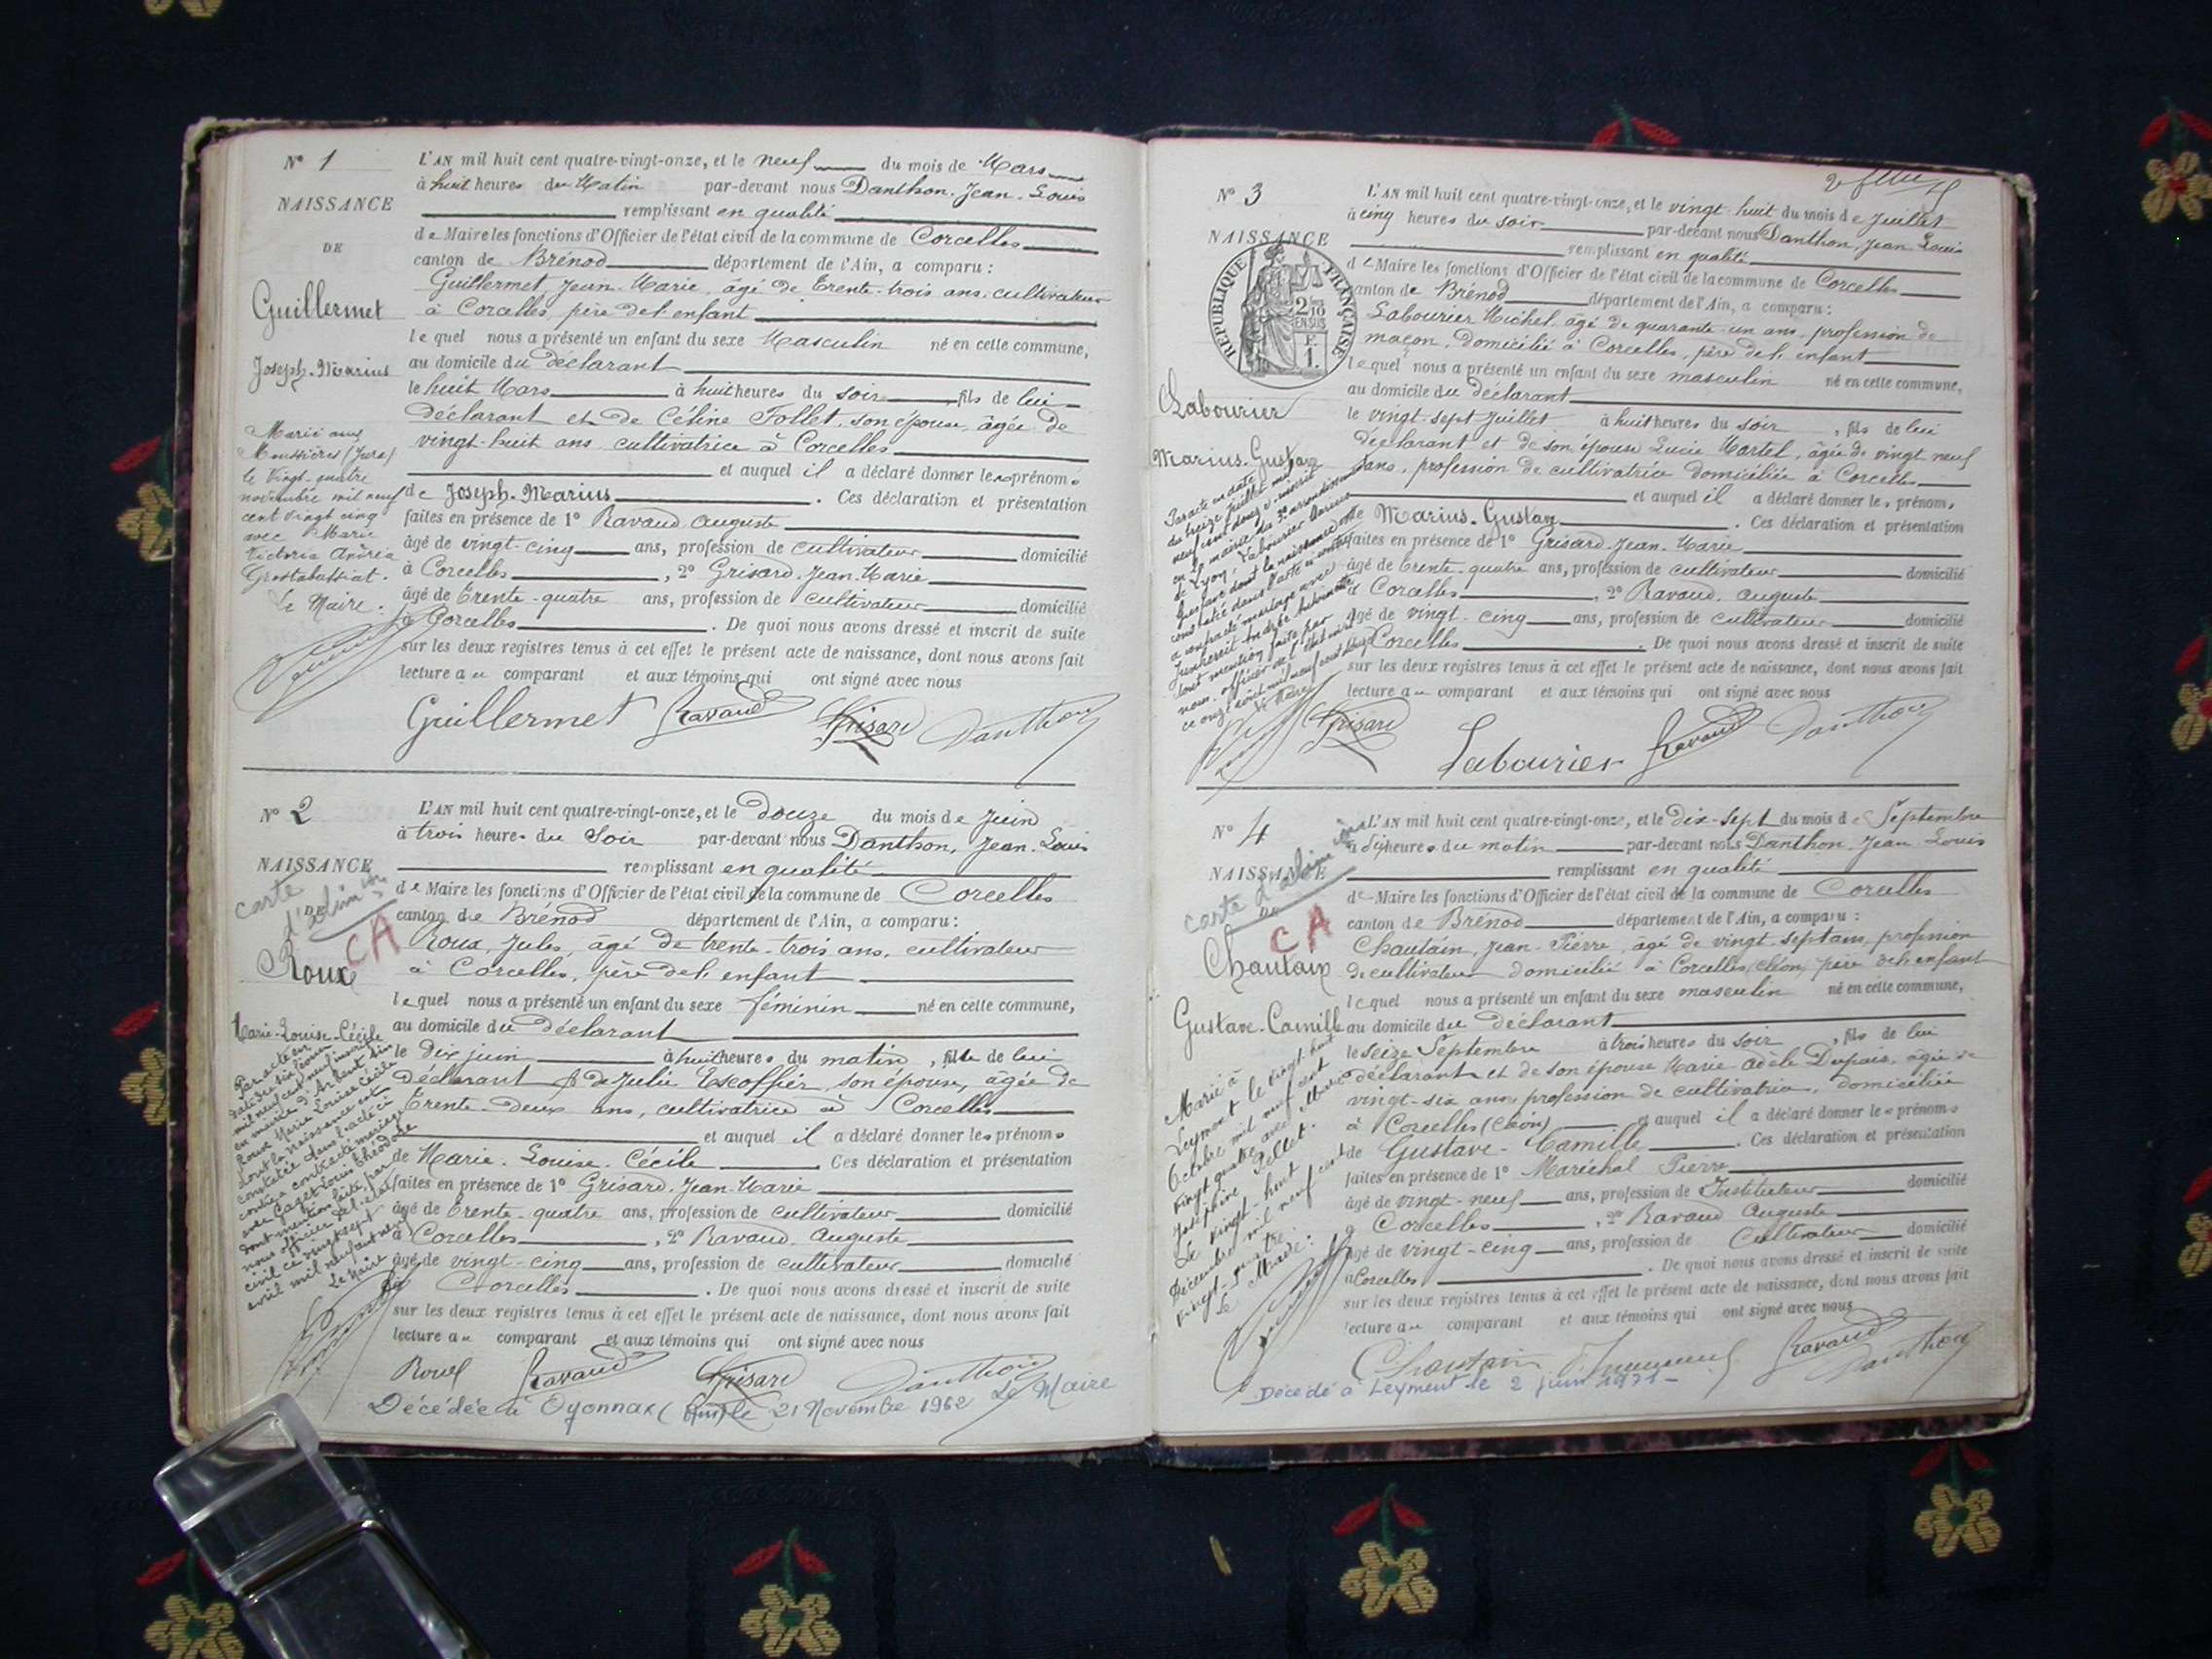 N° 1
NAISSANCE
DE
Guillermet
Joseph-Marius
Marié aux
Moussières (Jura)
le Vingt-quatre
novembre mil neuf
cent vingt cinq
avec Marie
Victoria
Grostabussiat.
Le Maire.
L'AN mil huit cent quatre-vingt-onze, et le neuf du mois de Mars
à huit heures du Matin par-devant nous Danthon, Jean-Louis
remplissant en qualité
de Maire les fonctions d'Officier de l'état civil de la commune de Corcelles
canton de Brénod département de l'Ain, a comparu :
Guillermet, Jean-Marie, âgé de trente-trois ans, cultivateur
à Corcelles, père de l'enfant
lequel nous a présenté un enfant du sexe Masculin né en cette commune,
au domicile du déclarant
le huit Mars à huit heures du soir fils de lui
déclarant et de Céline Tollet, son épouse, âgée de
vingt-huit ans, cultivatrice à Corcelles
et auquel il a déclaré donner les prénoms
de Joseph-Marius. Ces déclaration et présentation
faites en présence de 1° Ravaud, Auguste
âgé de vingt-cinq ans, profession de cultivateur domicilié
à Corcelles, 2° Grisard, Jean-Marie
âgé de trente-quatre ans, profession de cultivateur domicilié
à Corcelles. De quoi nous avons dressé et inscrit de suite
sur les deux registres tenus à cet effet le présent acte de naissance, dont nous avons fait
lecture au comparant et aux témoins qui ont signé avec nous
Guillermet Ravaud Grisard Danthon
N° 2
NAISSANCE
DE
carte
d'alim ion
CA
Roux
Marie-Louise-Cécile
Par acte en
mil neuf cent neuf inscrit
en mairie d'Arbent Ain
Roux Marie Louise Cécile
dont la naissance est
constatée dans l'acte ci
contre a contracté mariage
avec Caget Louis Théodore
dont mention faite par
nous officier de l'état
civil ce vingt sept
avril mil neuf cent neuf
Le Maire
L'AN mil huit cent quatre-vingt-onze, et le douze du mois de Juin
à trois heures du Soir par-devant nous Danthon, Jean-Louis
remplissant en qualité
de Maire les fonctions d'Officier de l'état civil de la commune de Corcelles
canton de Brénod département de l'Ain, a comparu :
Roux, Jules, âgé de trente-trois ans, cultivateur
à Corcelles, père de l'enfant
lequel nous a présenté un enfant du sexe féminin né en cette commune,
au domicile du déclarant
le dix juin à huit heures du matin, fille de lui
déclarant & de Julie Escoffier, son épouse, âgée de
trente-deux ans, cultivatrice à Corcelles
et auquel il a déclaré donner les prénoms
de Marie-Louise-Cécile Ces déclaration et présentation
faites en présence de 1° Grisard, Jean-Marie
âgé de trente-quatre ans, profession de cultivateur domicilié
à Corcelles, 2° Ravaud, Auguste
âgé de vingt-cinq ans, profession de cultivateur domicilié
à Corcelles. De quoi nous avons dressé et inscrit de suite
sur les deux registres tenus à cet effet le présent acte de naissance, dont nous avons fait
lecture au comparant et aux témoins qui ont signé avec nous
Roux Ravaud Grisard Danthon
Décédée à Oyonnax (Ain) le 21 Novembre 1962 Le Maire
N° 3
NAISSANCE
RÉPUBLIQUE FRANÇAISE
2/10 EN SUS
F. 1.
Labourier
Marius-Gustave
Par acte en date
du treize juillet mil
neuf cent douze inscrit
en la mairie du 3e arrondissement
de Lyon, Labourier Marius
Gustave dont la naissance est
constatée dans l'acte ci contre
a contracté mariage avec
dont mention faite par
nous officier de l'état civil
Le Maire
2e
L'AN mil huit cent quatre-vingt-onze, et le vingt-huit du mois de Juillet
à cinq heures du soir par-devant nous Danthon, Jean-Louis
remplissant en qualité
de Maire les fonctions d'Officier de l'état civil de la commune de Corcelles
canton de Brénod département de l'Ain, a comparu :
Labourier Michel, âgé de quarante-un ans, profession de
maçon, domicilié à Corcelles, père de l'enfant
lequel nous a présenté un enfant du sexe masculin né en cette commune,
au domicile du déclarant
le vingt-sept Juillet à huit heures du soir, fils de lui
déclarant et de son épouse Lucie Martel, âgée de vingt neuf
ans, profession de cultivatrice domiciliée à Corcelles
et auquel il a déclaré donner les prénoms
de Marius-Gustave. Ces déclaration et présentation
faites en présence de 1° Grisard, Jean-Marie
âgé de trente-quatre ans, profession de cultivateur domicilié
à Corcelles, 2° Ravaud, Auguste
âgé de vingt-cinq ans, profession de cultivateur domicilié
à Corcelles. De quoi nous avons dressé et inscrit de suite
sur les deux registres tenus à cet effet le présent acte de naissance, dont nous avons fait
lecture au comparant et aux témoins qui ont signé avec nous
Grisard Labourier Ravaud Danthon
N° 4
NAISSANCE
DE
carte d'alim ion
CA
Chautain
Gustave-Camille
Marié à
Leyment le vingt-huit
Octobre mil neuf cent
vingt quatre avec Marie
Joséphine Pellet.
Le vingt-huit
Décembre mil neuf cent
vingt-quatre.
Le Maire:
L'AN mil huit cent quatre-vingt-onze, et le dix-sept du mois de Septembre
à dix heures du matin par-devant nous Danthon, Jean-Louis
remplissant en qualité
de Maire les fonctions d'Officier de l'état civil de la commune de Corcelles
canton de Brénod département de l'Ain, a comparu :
Chautain, Jean-Pierre, âgé de vingt-sept ans, profession
de cultivateur domicilié à Corcelles (cléon) père de l'enfant
lequel nous a présenté un enfant du sexe masculin né en cette commune,
au domicile du déclarant
le seize Septembre à trois heures du soir, fils de lui
déclarant et de son épouse Marie Adèle Dupuis, âgée de
vingt-six ans, profession de cultivatrice, domiciliée
à Corcelles (Cléon) et auquel il a déclaré donner les prénoms
de Gustave-Camille. Ces déclaration et présentation
faites en présence de 1° Maréchal Pierre
âgé de vingt-neuf ans, profession de Instituteur domicilié
à Corcelles, 2° Ravaud Auguste
âgé de vingt-cinq ans, profession de Cultivateur domicilié
à Corcelles. De quoi nous avons dressé et inscrit de suite
sur les deux registres tenus à cet effet le présent acte de naissance, dont nous avons fait
lecture au comparant et aux témoins qui ont signé avec nous
Chautain Ravaud Danthon
Décédé à Leyment le 2 juin 1971-